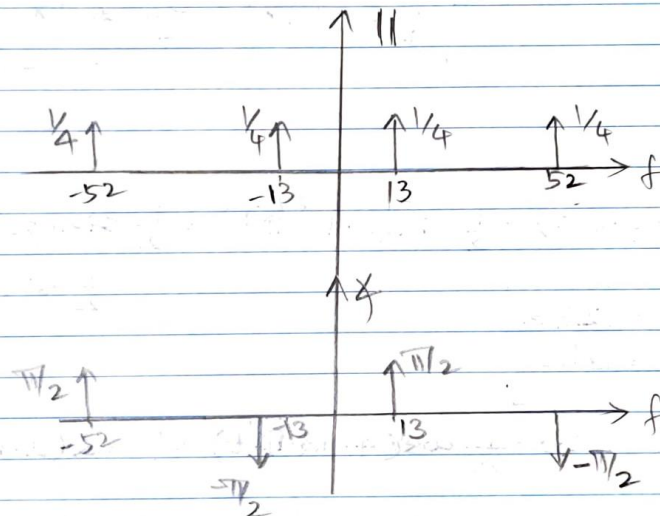 ||
1/4 1/4 1/4 1/4
-52 -13 13 52 f
∡
π/2 π/2
-52 -13 13 f
-π/2 -π/2